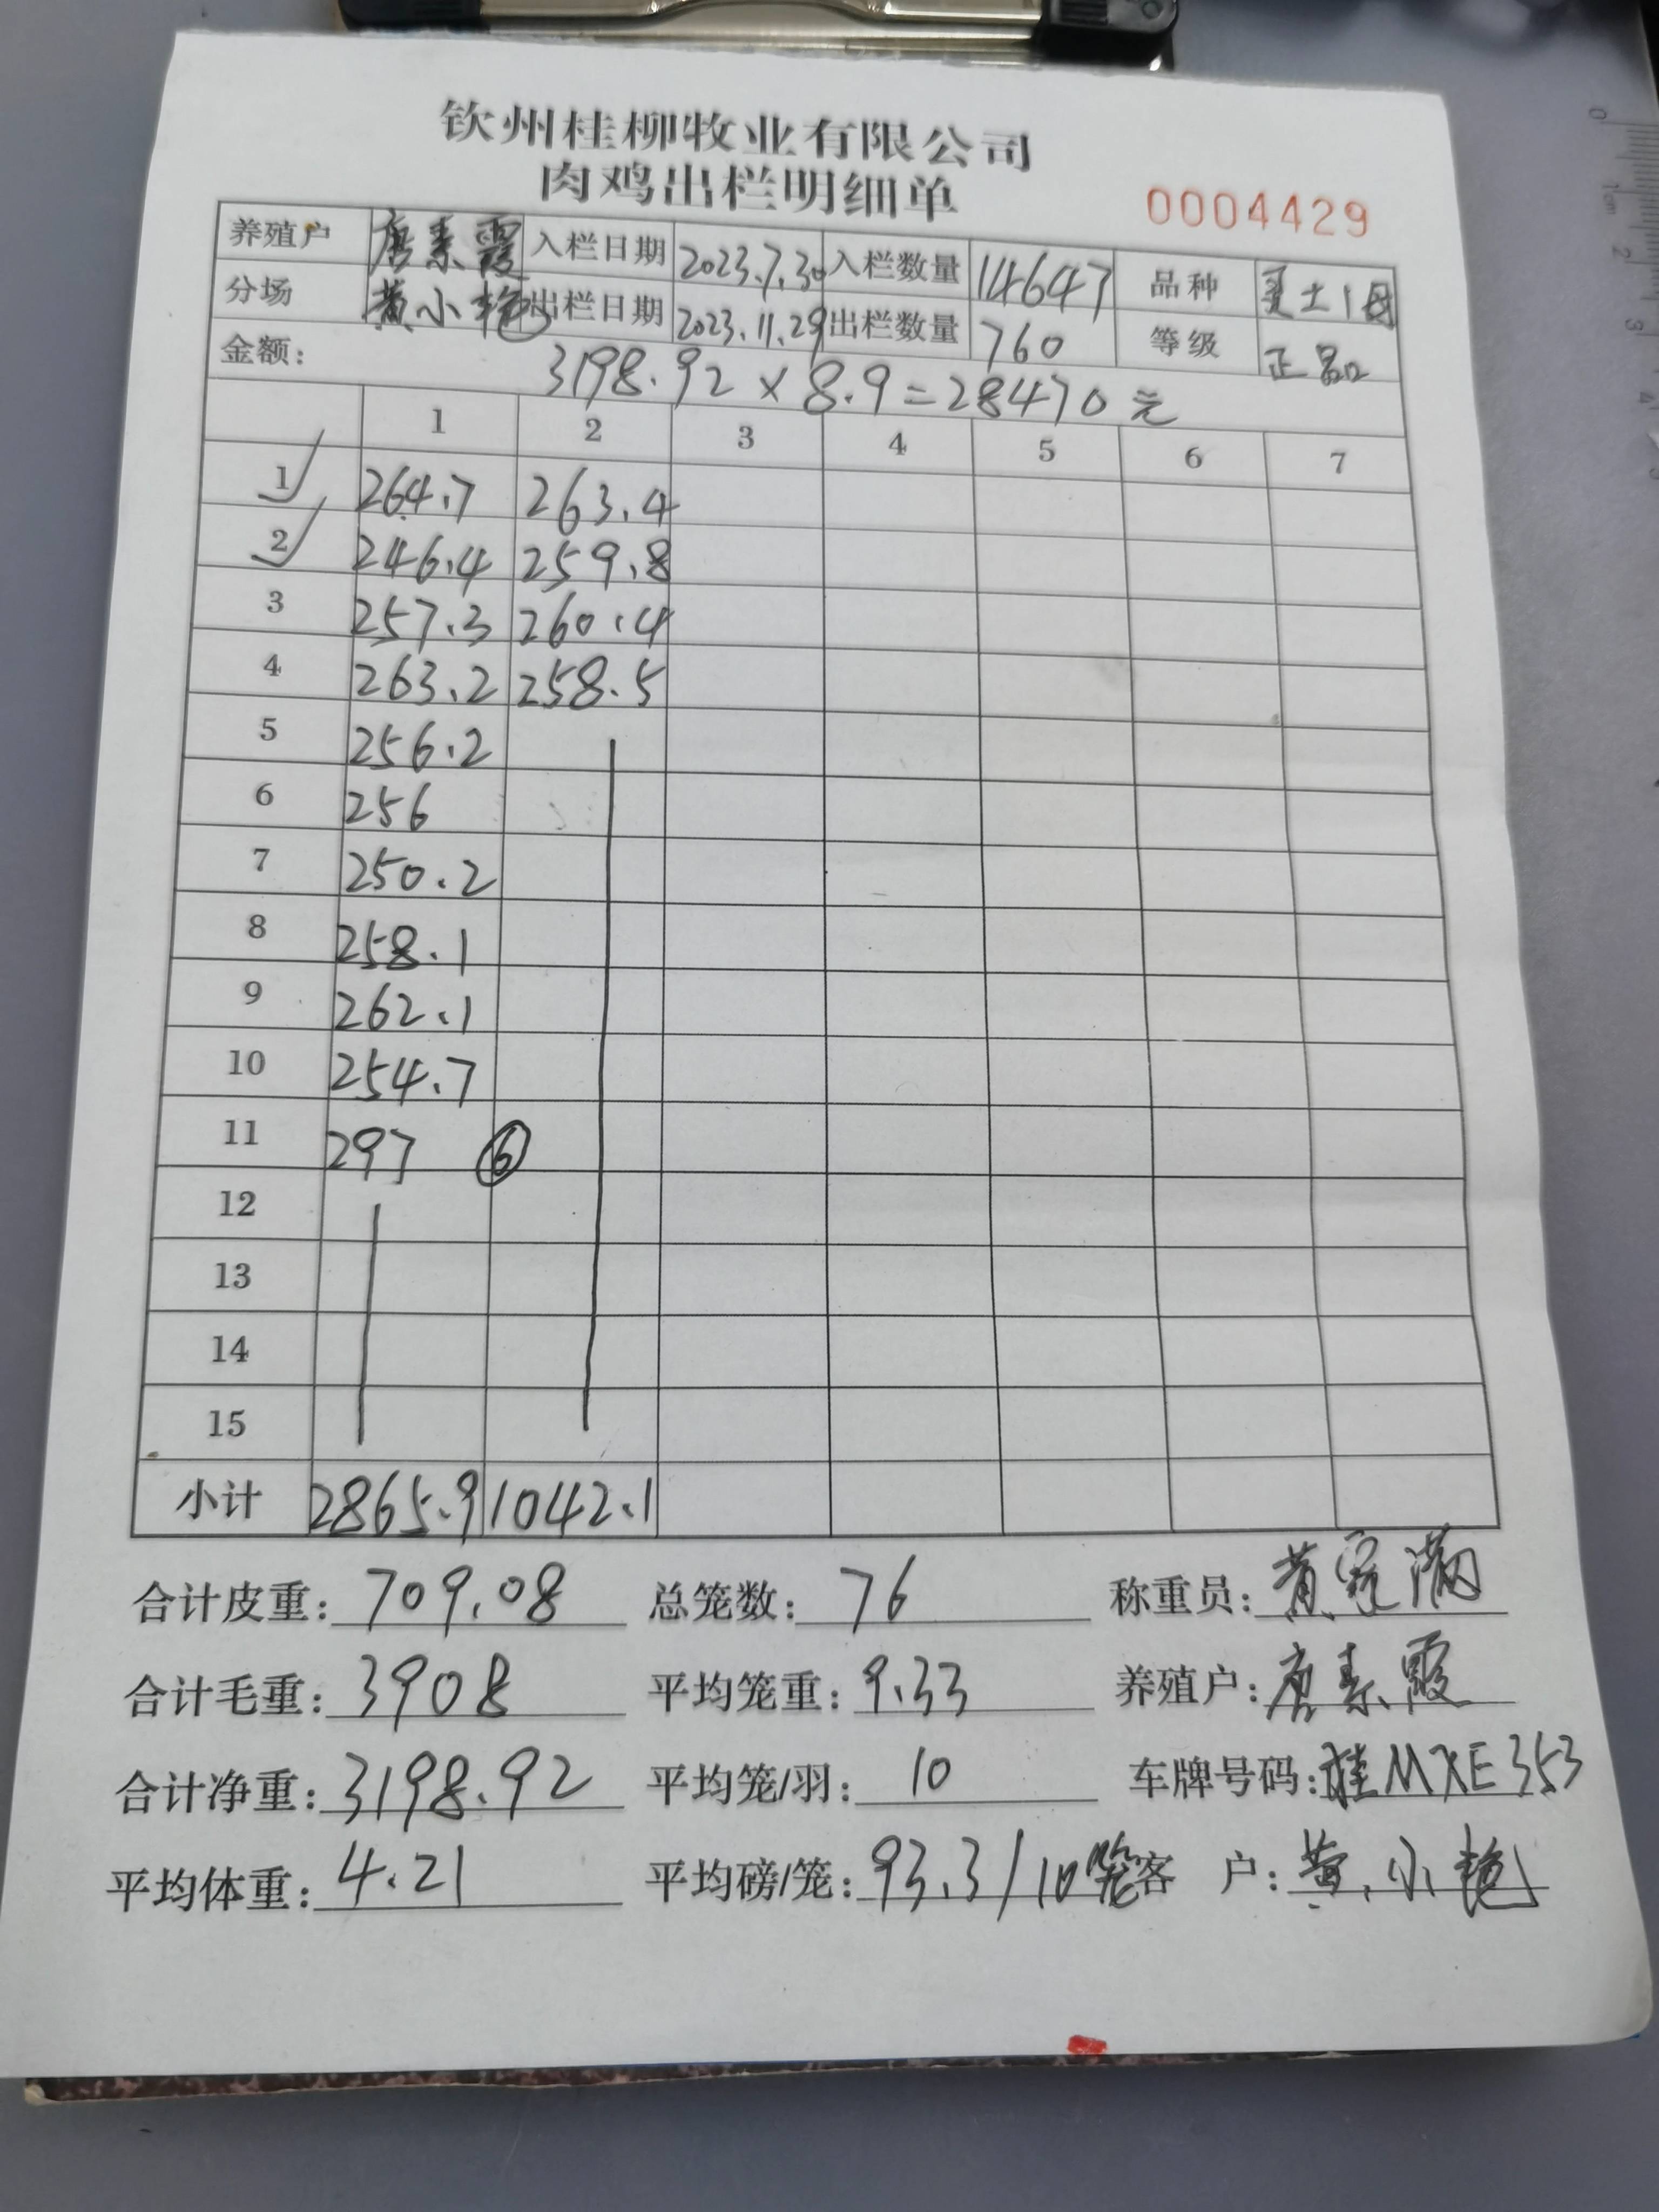 钦州桂柳牧业有限公司
肉鸡出栏明细单
0004429
养殖户 唐素霞 入栏日期 2023.7.30 入栏数量 14647 品种 土1母
分场 黄小艳 出栏日期 2023.11.29 出栏数量 760 等级 正品
金额: 3198.92 × 8.9 = 28470 元
1 2 3 4 5 6 7
1 264.7 263.4
2 246.4 259.8
3 257.3 260.4
4 263.2 258.5
5 256.2
6 256
7 250.2
8 258.1
9 262.1
10 254.7
11 297 ⑥
12
13
14
15
小计 2865.9 1042.1
合计皮重: 709.08 总笼数: 76 称重员: 黄家满
合计毛重: 3908 平均笼重: 9.33 养殖户: 唐素霞
合计净重: 3198.92 平均笼/羽: 10 车牌号码: 桂MXE353
平均体重: 4.21 平均磅/笼: 93.3/10笼 客 户: 黄小艳